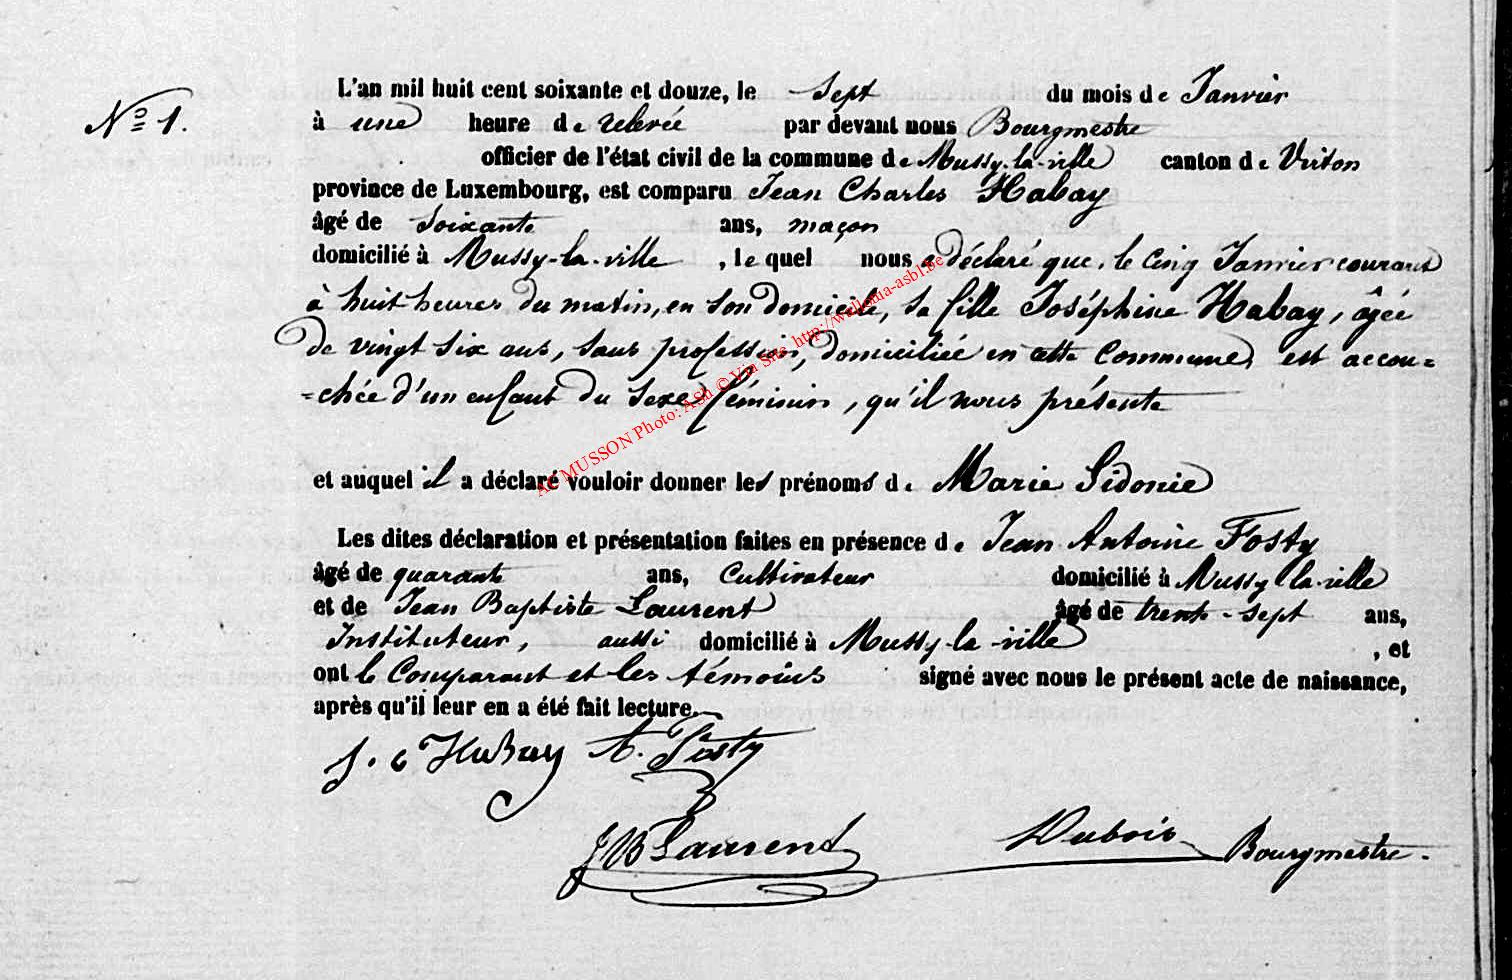 Nº 1.
L'an mil huit cent soixante et douze, le sept du mois de Janvier
à une heure de relevée par devant nous Bourgmestre
officier de l'état civil de la commune de Mussy-la-ville canton de Virton
province de Luxembourg, est comparu Jean Charles Habay
âgé de soixante ans, maçon
domicilié à Mussy-la-ville , le quel nous a déclaré que, le cinq Janvier courant
à huit heures du matin, en son domicile, sa fille Joséphine Habay, âgée
de vingt six ans, sans profession, domiciliée en cette commune, est accou=
=chée d'un enfant du sexe féminin, qu'il nous présente
et auquel il a déclaré vouloir donner les prénoms de Marie Sidonie
Les dites déclaration et présentation faites en présence de Jean Antoine Fosty
âgé de quarante ans, Cultivateur domicilié à Mussy-la-ville
et de Jean Baptiste Laurent âgé de trente-sept ans,
Instituteur, aussi domicilié à Mussy-la-ville , et
ont le Comparant et les témoins signé avec nous le présent acte de naissance,
après qu'il leur en a été fait lecture.
J. C Habay A. Fosty
JB Laurent Dubois Bourgmestre.
AC MUSSON Photo: Ash © Via Site http://wallonia-asbl.be